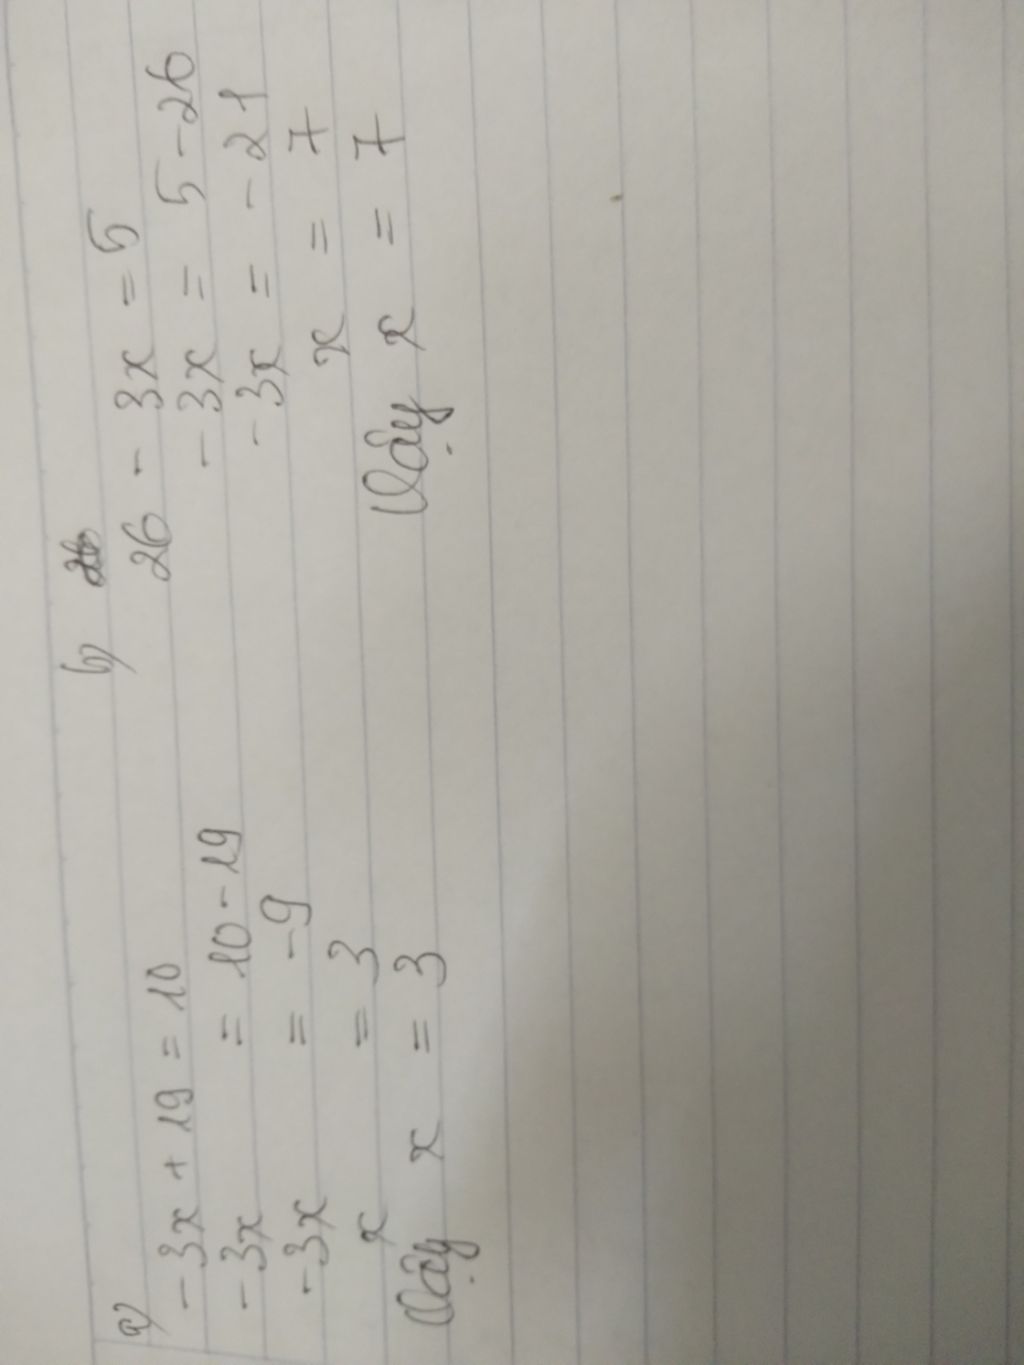 a)
-3x + 19 = 10
-3x = 10 - 19
-3x = -9
x = 3
Vậy x = 3
b)
26 - 3x = 5
-3x = 5 - 26
-3x = -21
x = 7
Vậy x = 7